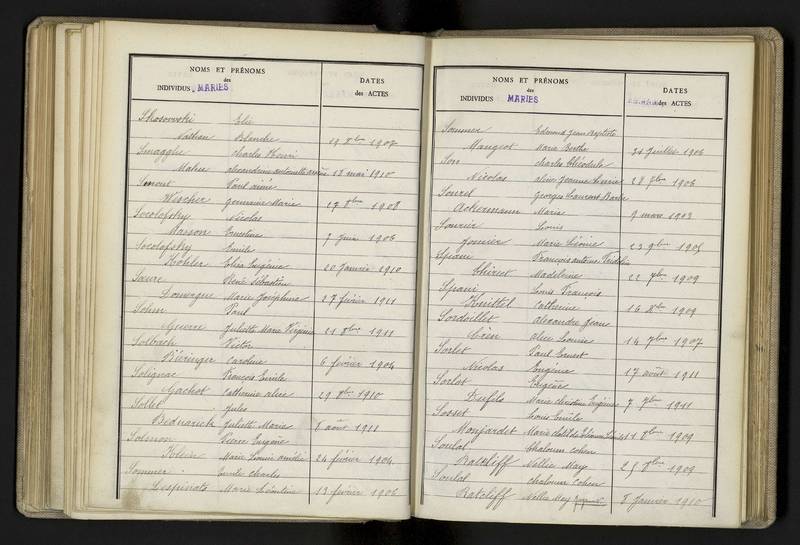 NOMS ET PRÉNOMS
des
INDIVIDUS MARIES
DATES
des ACTES
Skosowski Elie
Nathan Blanche 19 8bre 1907
Smagghe Charles Henri
Mahu Alexandrine Antoinette 18 mai 1910
Smont Paul Aimé
Wischer Germaine Marie 17 8bre 1908
Socolofsky Nicolas
Masson Ernestine 7 Juin 1906
Socolofsky Emile
Kohler Elisa Eugénie 20 Janvier 1910
Sœur René Sébastien
Marie Joséphine 27 février 1911
Sohm Paul
Guerre Juliette Marie Virginie 21 8bre 1911
Solbach Victor
Biéringer Caroline 6 février 1904
Solignac François Emile
Gachot Catherine Alice 29 1910
Sollet Jules
Bednarick Juliette Marie 8 août 1911
Solsson Pierre Eugène
Klein Marie Louise Amélie 24 février 1904
Sommer Emile Charles
Lespinats Marie Léontine 13 février 1906
NOMS ET PRÉNOMS
des
INDIVIDUS MARIES
DATES
des ACTES
Sommer Edmond Jean Baptiste
Mangeot Marie Berthe 21 Juillet 1906
Son Charles
Nicolas Alice Jeanne Lucie 28 1906
Sourel Georges Laurent
Ackermann Maria 9 mars 1903
Sourier Louis
Josnier Marie Léonie 23 9bre 1905
Spani François Antoine
Thiriet Madeleine 22 1909
Spani Louis François
Knittel Catherine 16 1909
Sordoillet Alexandre Jean
Alice Louise 14 1907
Sorlet Paul Ernest
Nicolas Eugénie 17 août 1911
Sorlot Eugène
Dufils Marie Christine Eugénie 7 7bre 1911
Sosset Louis Emile
Monjardet Marie 11 8bre 1909
Soulal Chaloum Cohen
Ratcliff Nellie May 25 8bre 1909
Soulal Chaloum Cohen
Ratcliff Nellie May 8 Janvier 1910